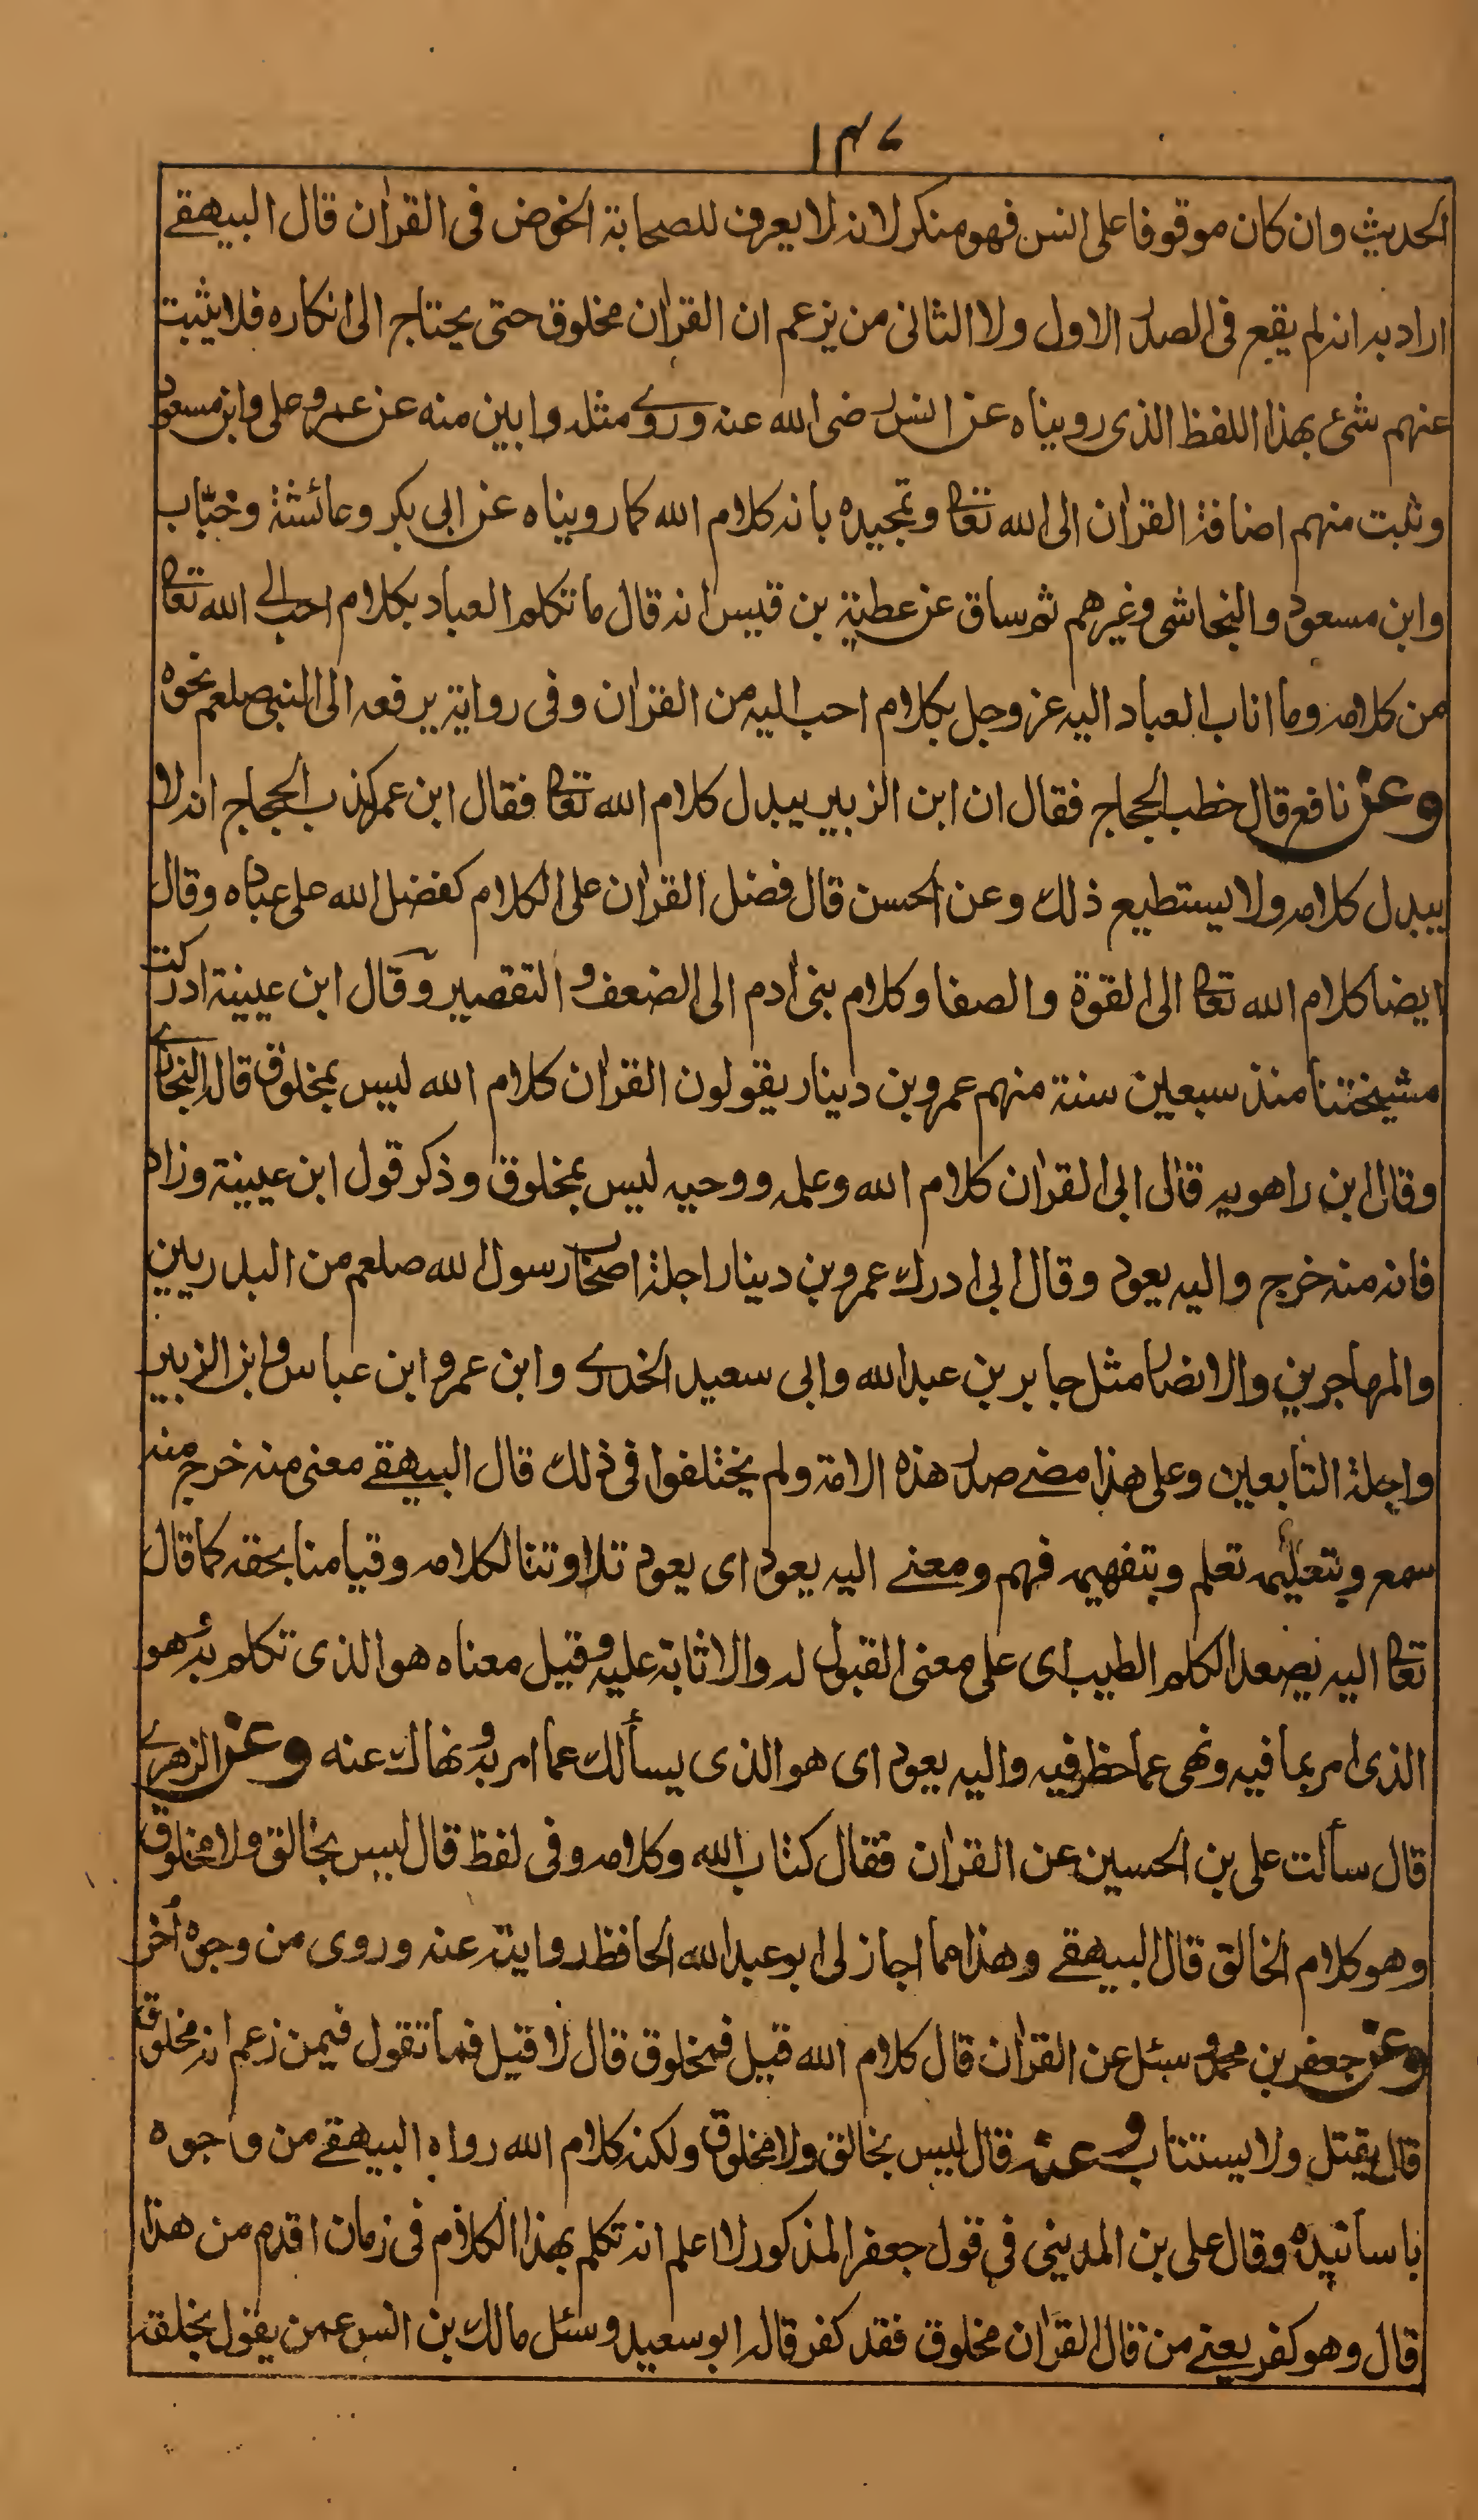 ١٤٧
الحديث وان كان موقوفا على انس فهو منكر لانه لا يعرف للصحابة الخوض فى القرآن قال البيهقے
اراد به انه لم يقع فى الصدر الاول ولا الثانى من يزعم ان القرآن مخلوق حتى يحتاج الى انكاره فلا يثبت
عنهم شئ بهذا اللفظ الذى رويناه عن انس رضى الله عنه وروے مثله وابين منه عن عمر وعلى وابن مسعود
وثبت منهم اضافة القرآن الى الله تعا وتمجيده بانه كلام الله كما رويناه عن ابى بكر وعائشة وخبّاب
وابن مسعود والنجاشى وغيرهم ثم ساق عن عطية بن قيس انه قال ما تكلم العباد بكلام احب الى الله تعا
من كلامه وما اناب العباد اليه عز وجل بكلام احب اليه من القرآن وفى رواية يرفعه الى النبى صلعم نحوه
وعن نافع قال خطب الحجاج فقال ان ابن الزبير يبدل كلام الله تعا فقال ابن عمر كذب الحجاج انه لا
يبدل كلامه ولا يستطيع ذلك وعن الحسن قال فضل القرآن على الكلام كفضل الله على عباده وقال
ايضا كلام الله تعا الى القوة والصفا وكلام بنى آدم الى الضعف و التقصير وقال ابن عيينة ادركت
مشيختنا منذ سبعين سنة منهم عمرو بن دينار يقولون القرآن كلام الله ليس بمخلوق قاله البخارے
وقال ابن راهويه قال لى ابى القرآن كلام الله وعلمه ووحيه ليس بمخلوق وذكر قول ابن عيينة وزاد
فانه منه خرج واليه يعود وقال ابى ادرك عمرو بن دينار اجلة اصحاب رسول الله صلعم من البدريين
والمهاجرين والانصار مثل جابر بن عبد الله وابى سعيد الخدرے وابن عمر و ابن عباس وابن الزبير
واجلة التابعين وعلى هذا مضے صدر هذه الامة ولم يختلفوا فى ذلك قال البيهقے معنى منه خرج منه
سمع وبتعليمه تعلم وبتفهيمه فهم ومعنے اليه يعود اى يعود تلاوتنا لكلامه وقيامنا بحقه كما قال
تعا اليه يصعد الكلم الطيب اى على معنى القبول له والاثابة عليه وقيل معناه هو الذى تكلم به وهو
الذى امر بما فيه ونهى عما حظر فيه واليه يعود اى هو الذى يسألك عما امر به ونهاك عنه وعن الزهرے
قال سألت على بن الحسين عن القرآن فقال كتاب الله وكلامه وفى لفظ قال ليس بخالق ولا مخلوق
وهو كلام الخالق قال البيهقے وهذا مما اجاز لى ابو عبد الله الحافظ روايته عنه وروى من وجوه أخر
وعن جعفر بن محمد وسئل عن القرآن قال كلام الله قيل فمخلوق قال لا قيل فما تقول فيمن زعم انه مخلوق
قال يقتل ولا يستتاب وعنه قال ليس بخالق ولا مخلوق ولكنه كلام الله رواه البيهقے من وجوه
باسانيده وقال على بن المدينى فى قول جعفر المذكور لا اعلم انه تكلم بهذا الكلام فى زمان اقدم من هذا
قال وهو كفر يعنے من قال القرآن مخلوق فقد كفر قاله ابو سعيد وسئل مالك بن انس عمن يقول بخلقه